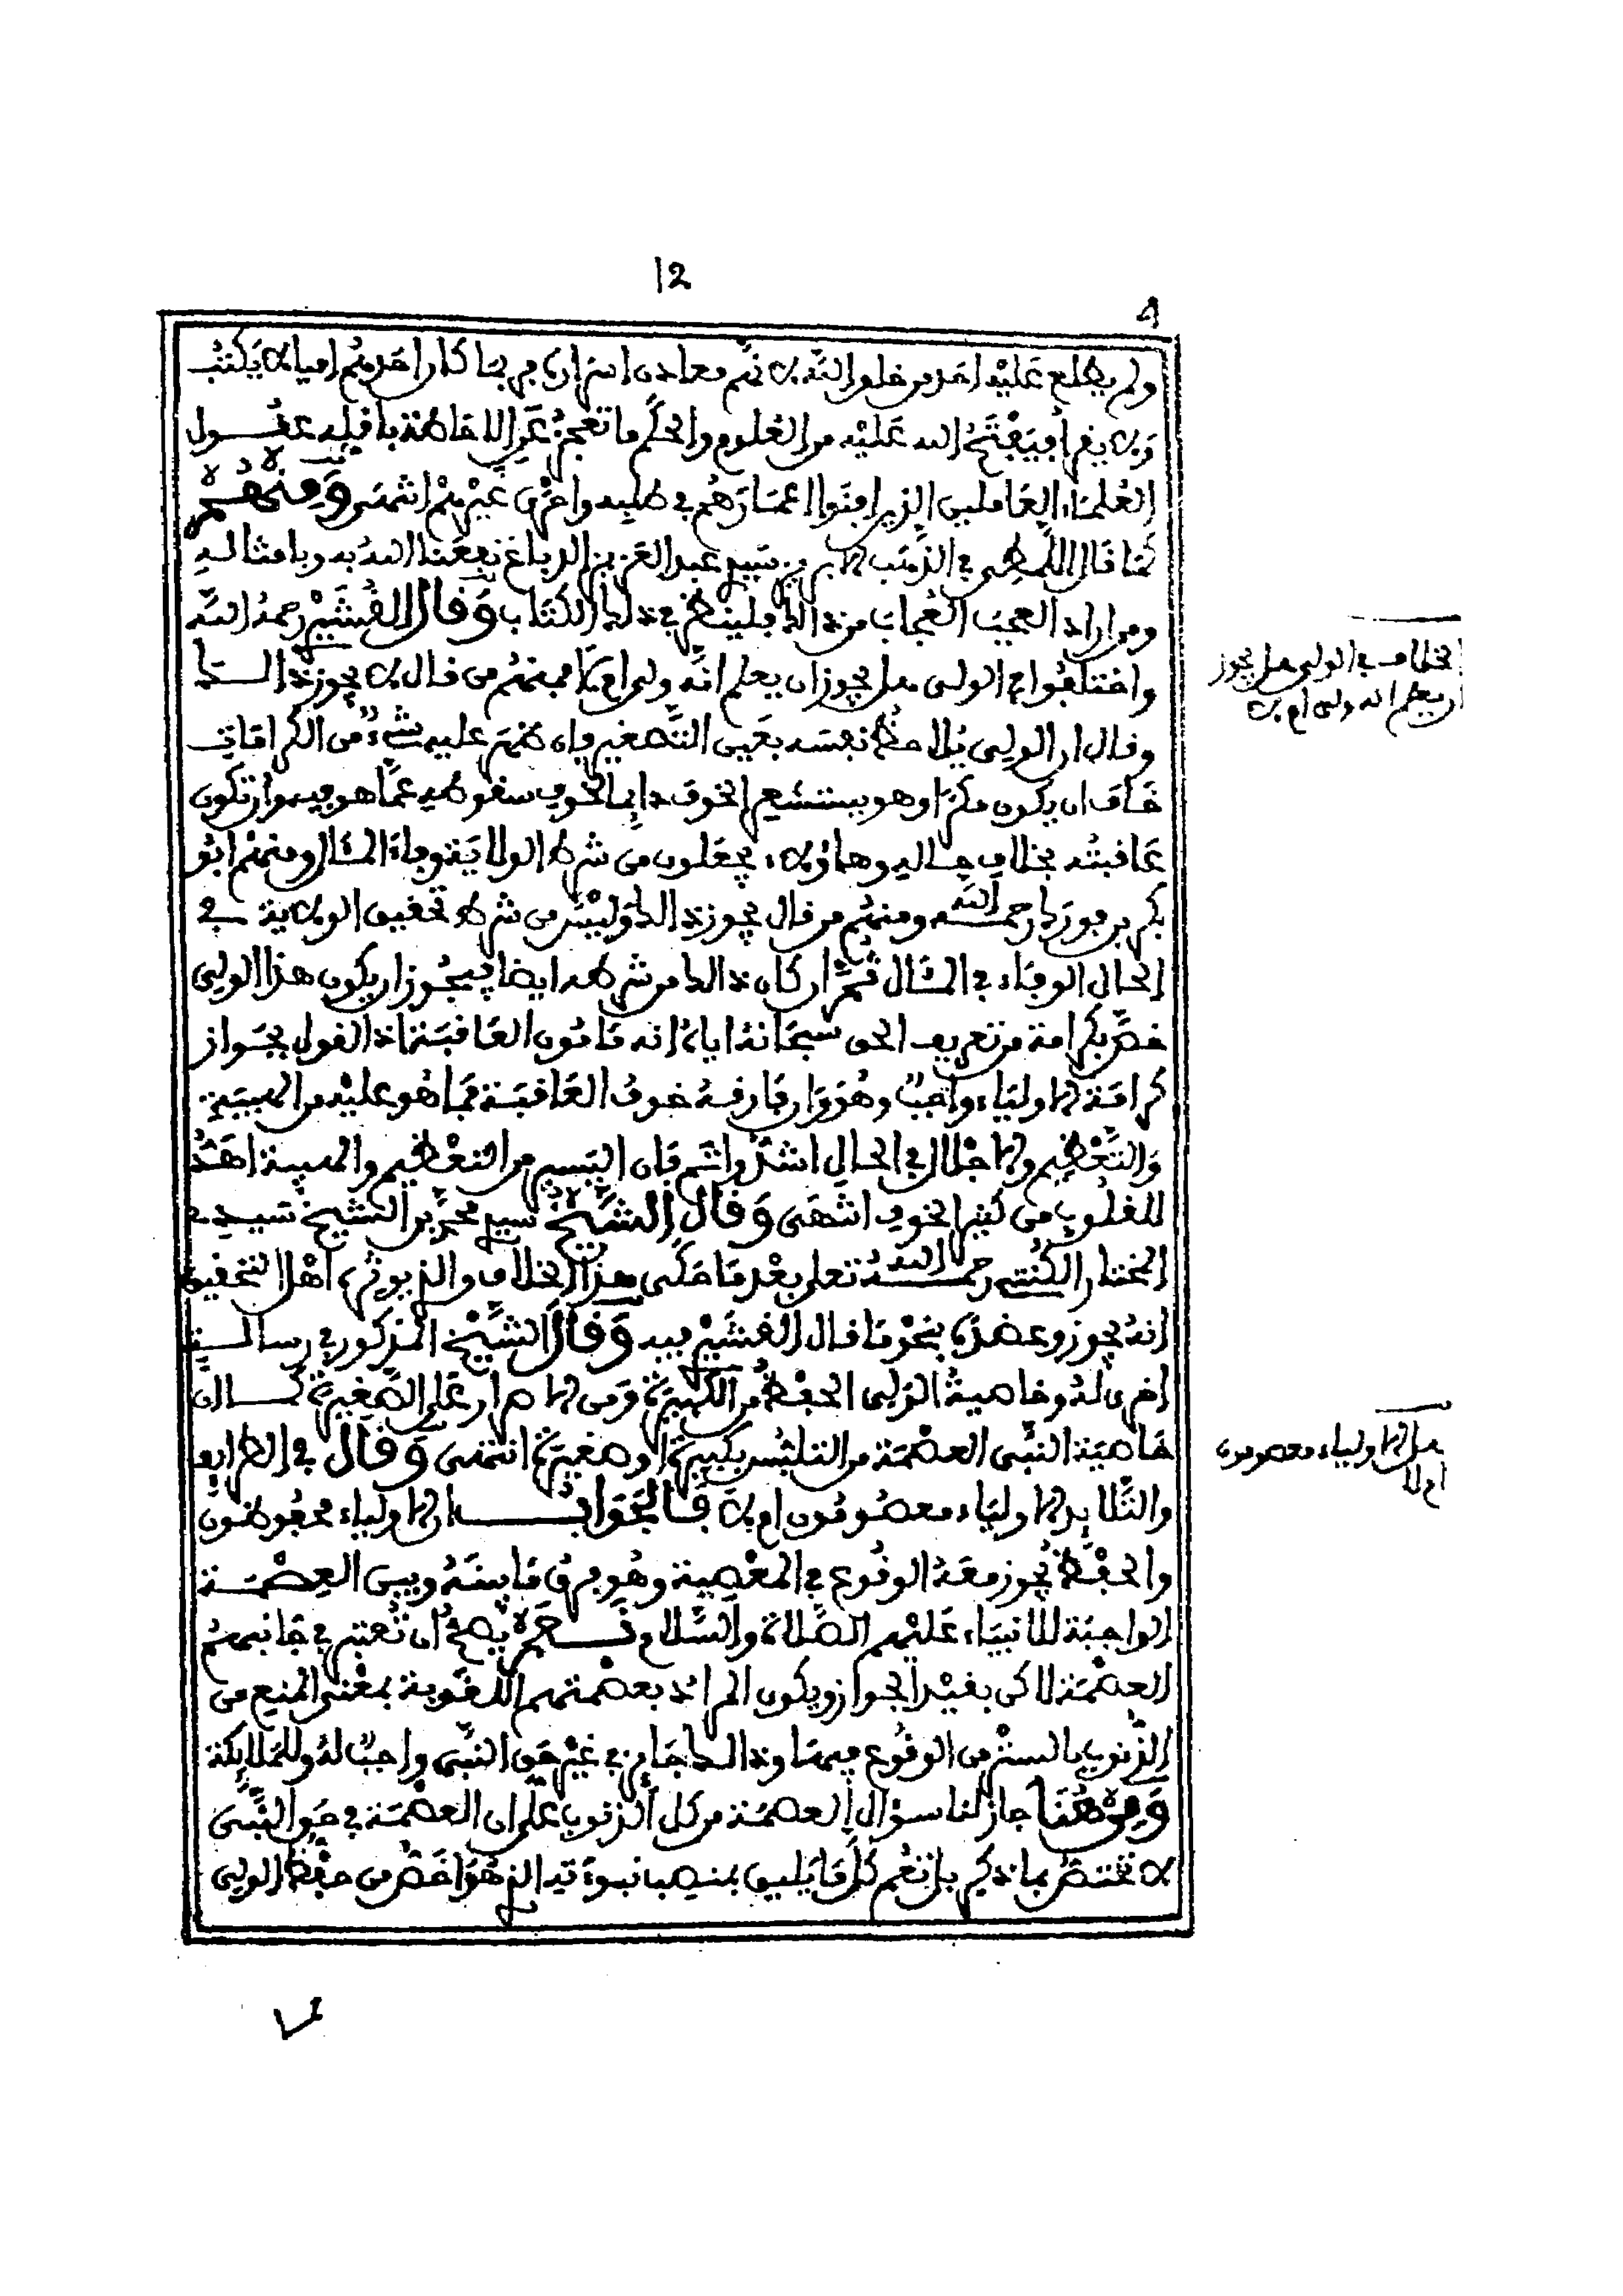 12
ولم يطلع عليه احد من خلق الله لانهم معادن اسراره فربما كان احدهم اميا لا يكتب
ولا يقرأ فيفتح الله عليه من العلوم والحكم ما تعجز عن الاحاطة باقله عقول
العلماء العاملين الذين افنوا اعمارهم في طلبه واحرى غيرهم انتهى ومنهم
كما قال اللمطي في الذهب الابريز سيدي عبد العزيز الدباغ نفعنا الله به وبامثاله
ومن اراد العجب العجاب من ذلك فلينظر في ذلك الكتاب وقال القشيري رحمه الله
واختلفوا في الولي هل يجوز ان يعلم انه ولي ام لا فمنهم من قال لا يجوز ذالك
وقال ان الولي يلاحظ نفسه بعين التصغير وان ظهر عليه شيء من الكرامات
خاف ان يكون مكرا وهو يستشعر الخوف دايما لخوف سقوطه عما هو فيه وان تكون
عاقبته بخلاف حاله وهاؤلاء يجعلون من شرط الولاية وفاء المئال ومنهم ابو
بكر بن فورك رحمه الله ومنهم من قال يجوز ذالك وليس من شرط تحقيق الولاية في
الحال الوفاء في المئال ثم ان كان ذالك من شرطه ايضا فيجوز ان يكون هذا الولي
خص بكرامة من تعريف الحق سبحانه اياه انه مامون العاقبة اذ القول بجواز
كرامة الاولياء واجب وهو وان فارقه خوف العاقبة فما هو عليه من الهيبة
والتعظيم والاجلال في الحال اشد واتم فان اليسير من التعظيم والهيبة اهد
للقلوب من كثير الخوف انتهى وقال الشيخ سيدي محمد بن الشيخ سيدي
المختار الكنتي رحمه الله تعلى بعد ما حكى هذا الخلاف والذي يوثره اهل التحقيق
انه يجوز وعضده بنحو ما قال القشيري فيه وقال الشيخ المذكور في رسالة
اخرى له وخاصية الولي الحفظ من الكبيرة ومن الاصرار على الصغيرة كما ان
خاصية النبي العصمة من التلبس بكبيرة او صغيرة انتهى وقال في الطرايف
والتلايد الاولياء معصومون ام لا فالجواب ان الاولياء محفوظون
والحفظ يجوز معه الوقوع في المعصية وهو فرق ما بينه وبين العصمة
الواجبة للانبياء عليهم الصلاة والسلام نعم يصح ان تعتبر في جانبهم
العصمة لاكن بقيد الجواز ويكون المراد بعصمتهم اللغوية بمعنى المنع من
الذنوب بالستر من الوقوع فيها وذالك جايز في غير حق النبي واجب له وللملايكة
ومن هنا جاز لنا سؤال العصمة من كل الذنوب على ان العصمة في حق النبي
لا تختص بما ذكر بل تعم كل ما يليق بمنصب نبوءته الذي هو اخص من حفظ الولي
الخلاف في الولي هل يجوز
ان يعلم انه ولي ام لا
هل الاولياء معصومون
ام لا